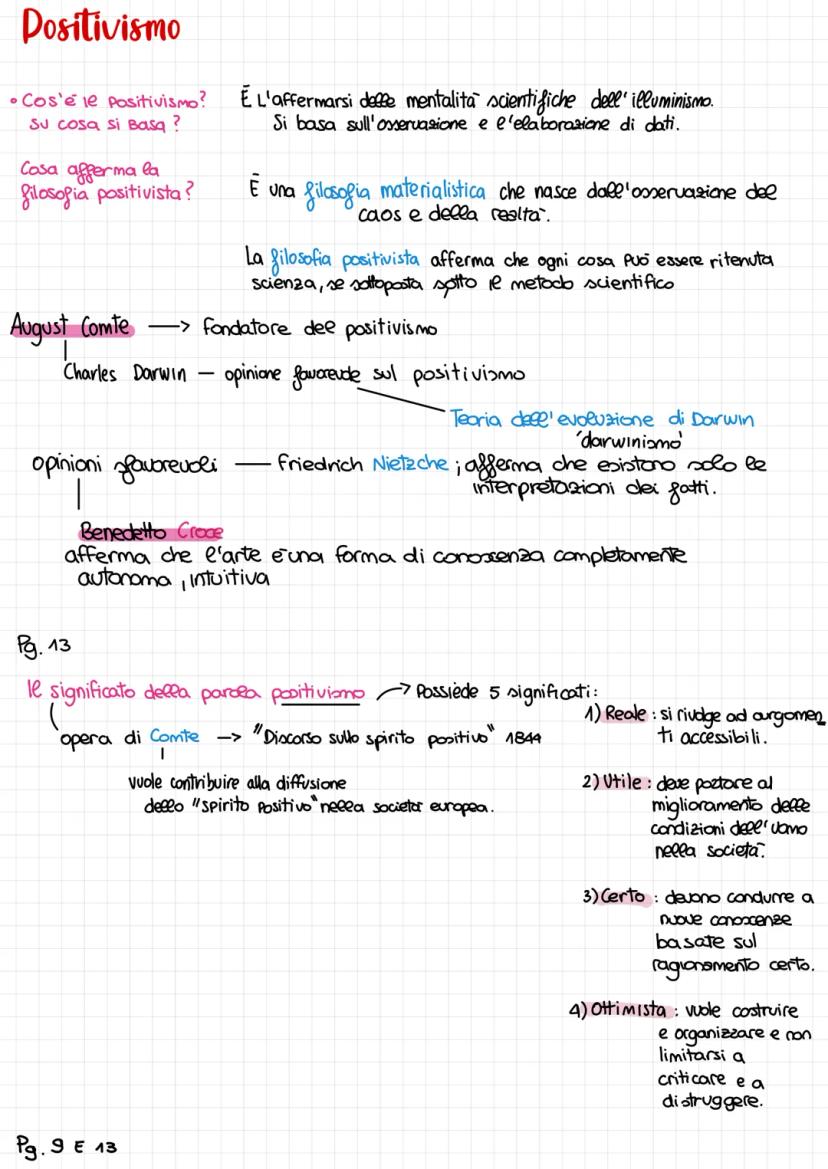 Positivismo
• Cos'è il Positivismo?
su cosa si Basa?
È L'affermarsi delle mentalità scientifiche dell'illuminismo.
Si basa sull'osservazione e l'elaborazione di dati.
Cosa afferma la
filosofia positivista?
È una filosofia materialistica che nasce dall'osservazione del
caos e della realtà.
La filosofia positivista afferma che ogni cosa può essere ritenuta
scienza, se sottoposta sotto il metodo scientifico
August Comte → fondatore del positivismo
Charles Darwin – opinione favorevole sul positivismo
Teoria dell'evoluzione di Darwin
'darwinismo'
opinioni sfavorevoli — Friedrich Nietzche ; afferma che esistono solo le
interpretazioni dei fatti.
Benedetto Croce
afferma che l'arte è una forma di conossenza completamente
autonoma, intuitiva
Pg. 13
Il significato della parola positivismo → Possiede 5 significati:
opera di Comte → "Discorso sullo spirito positivo" 1844
vuole contribuire alla diffusione
dello "spirito Positivo" nella società europea.
1) Reale : si rivolge ad argomen
ti accessibili.
2) Utile : deve portare al
miglioramento delle
condizioni dell'uomo
nella società.
3) Certo : devono condurre a
nuove conoscenze
basate sul
ragionamento certo.
4) Ottimista : vuole costruire
e organizzare e non
limitarsi a
criticare e a
distruggere.
Pg. 9 E 13